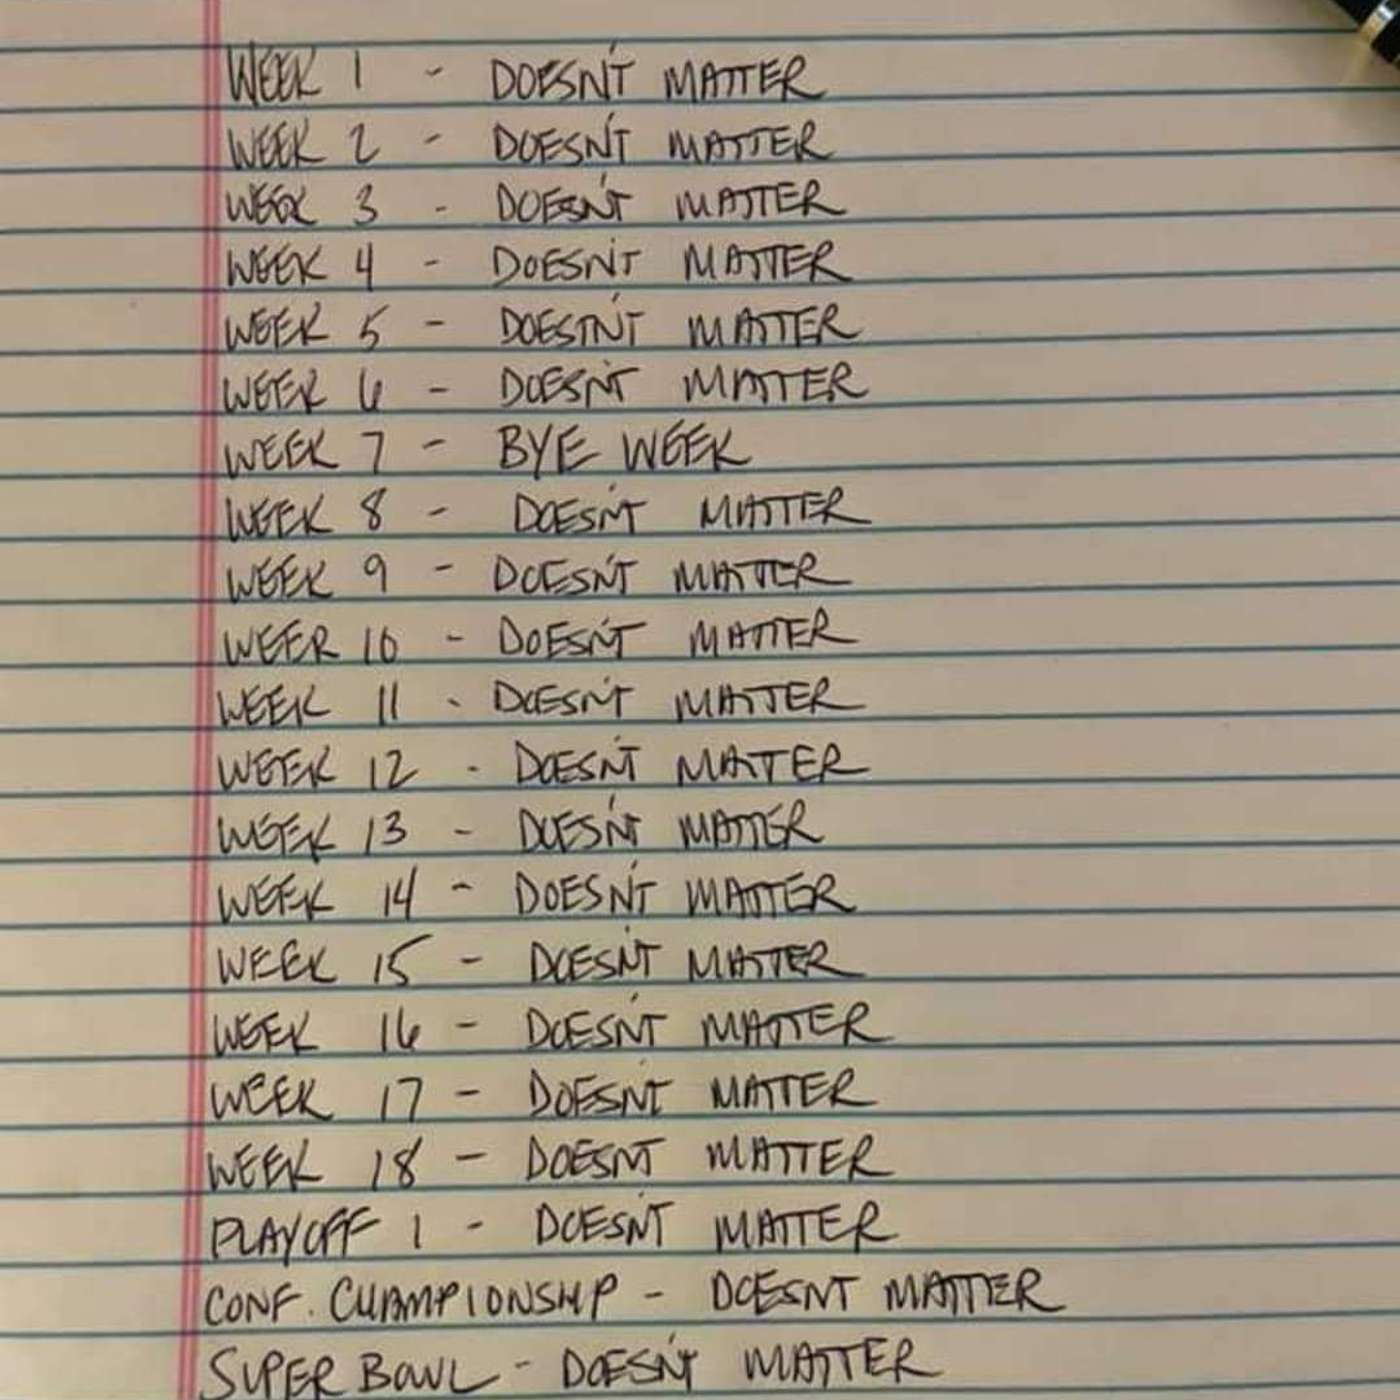 WEEK 1 - DOESN'T MATTER
WEEK 2 - DOESN'T MATTER
WEEK 3 - DOESN'T MATTER
WEEK 4 - DOESN'T MATTER
WEEK 5 - DOESTN'T MATTER
WEEK 6 - DOESN'T MATTER
WEEK 7 - BYE WEEK
WEEK 8 - DOESN'T MATTER
WEEK 9 - DOESN'T MATTER
WEEK 10 - DOESN'T MATTER
WEEK 11 - DOESN'T MATTER
WEEK 12 - DOESN'T MATTER
WEEK 13 - DOESN'T MATTER
WEEK 14 - DOESN'T MATTER
WEEK 15 - DOESN'T MATTER
WEEK 16 - DOESN'T MATTER
WEEK 17 - DOESN'T MATTER
WEEK 18 - DOESNT MATTER
PLAYOFF 1 - DOESN'T MATTER
CONF. CHAMPIONSHIP - DOESNT MATTER
SUPER BOWL - DOESN'T MATTER